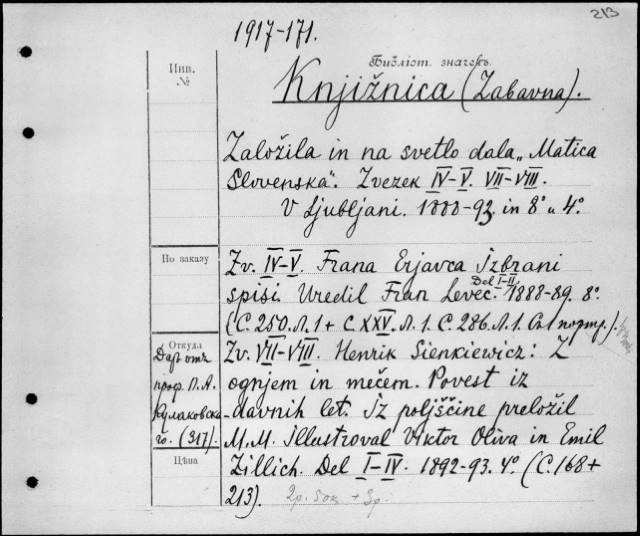 213
1917-171.
Библіот. значекъ.
Инв. №
Knjižnica (Zabavna).
Založila in na svetlo dala „Matica
Slovenska“. Zvezek IV-V. VII-VIII.
V Ljubljani. 1888-93. in 8° и 4°.
По заказу
Zv. IV-V. Frana Erjavca Izbrani
spisi. Uredil Fran Levec. Del I-II. 1888-89. 8°.
(С. 250. Л. 1 + С. XXV. Л. 1. С. 286. Л. 1. Съ портр.).
Откуда
Даръ отъ
проф. П. А.
Кулаковска-
го. (317).
Цѣна
Zv. VII-VIII. Henrik Sienkiewicz: Z
ognjem in mečem. Povest iz
davnih let. Iz poljščine preložil
M. M. Illustroval Viktor Oliva in Emil
Zillich. Del I-IV. 1892-93. 4°. (С. 168 +
213).